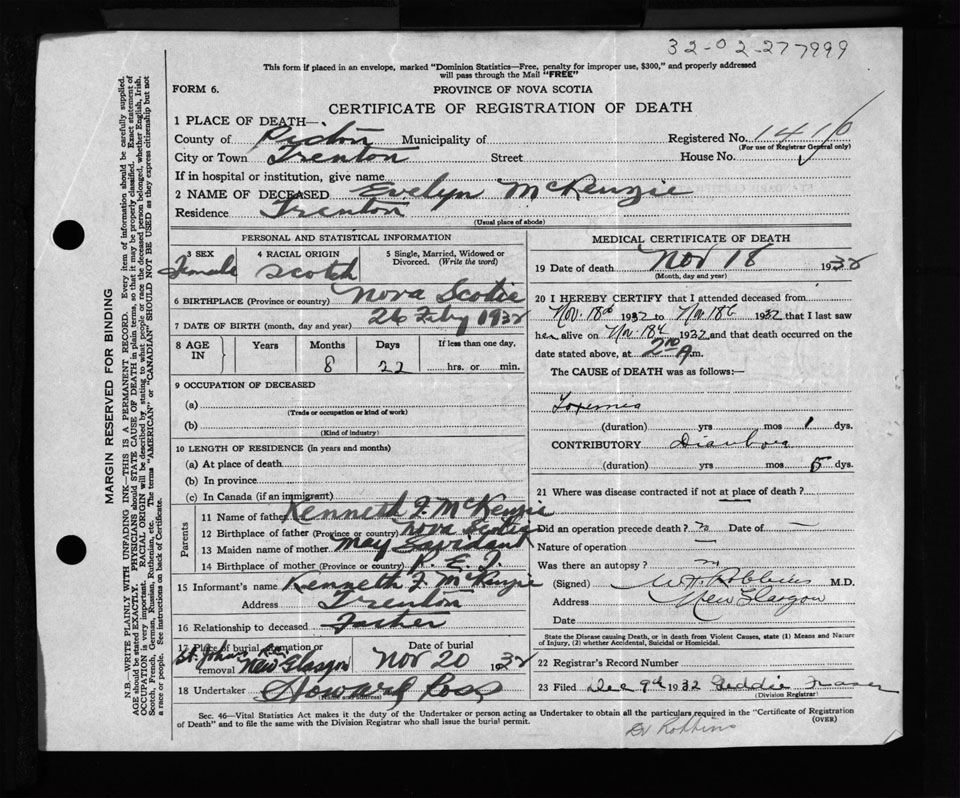 32-02-277999
This form if placed in an envelope, marked "Dominion Statistics—Free, penalty for improper use, $300," and properly addressed
will pass through the Mail "FREE"
FORM 6.
PROVINCE OF NOVA SCOTIA
CERTIFICATE OF REGISTRATION OF DEATH
1 PLACE OF DEATH—
County of Pictou Municipality of Registered No.
(For use of Registrar General only)
City or Town Trenton Street House No.
If in hospital or institution, give name
2 NAME OF DECEASED Evelyn McKenzie
Residence Trenton
(Usual place of abode)
PERSONAL AND STATISTICAL INFORMATION
3 SEX Female
4 RACIAL ORIGIN Scotch
5 Single, Married, Widowed or Divorced. (Write the word)
6 BIRTHPLACE (Province or country) Nova Scotia
7 DATE OF BIRTH (month, day and year) 26 Feby 1932
8 AGE IN Years Months 8 Days 22 If less than one day, hrs. or min.
9 OCCUPATION OF DECEASED
(a)
(Trade or occupation or kind of work)
(b)
(Kind of industry)
10 LENGTH OF RESIDENCE (in years and months)
(a) At place of death
(b) In province
(c) In Canada (if an immigrant)
Parents
11 Name of father Kenneth J. McKenzie
12 Birthplace of father (Province or country) Nova Scotia
13 Maiden name of mother May
14 Birthplace of mother (Province or country) P. E. I.
15 Informant's name Kenneth J. McKenzie
Address Trenton
16 Relationship to deceased Father
17 Place of burial, cremation or removal St. Johns New Glasgow
Date of burial Nov 20 1932
18 Undertaker Howard Ross
(Name and address)
MEDICAL CERTIFICATE OF DEATH
19 Date of death Nov 18 1932
(Month, day and year)
20 I HEREBY CERTIFY that I attended deceased from
Nov. 18th 1932 to Nov. 18th 1932 that I last saw
her alive on Nov. 18th 1932 and that death occurred on the
date stated above, at A.m.
The CAUSE of DEATH was as follows:—
Toxemia
(duration) yrs mos 1 dys.
CONTRIBUTORY Diarrhoea
(duration) yrs mos 5 dys.
21 Where was disease contracted if not at place of death?
Did an operation precede death? no Date of —
Nature of operation —
Was there an autopsy? no
(Signed) W. H. Robbins M.D.
Address New Glasgow
Date
State the Disease causing Death, or in death from Violent Causes, state (1) Means and Nature
of Injury, (2) whether Accidental, Suicidal or Homicidal.
22 Registrar's Record Number
23 Filed Dec 9th 1932 Geddie Fraser
(Division Registrar)
Sec. 46—Vital Statistics Act makes it the duty of the Undertaker or person acting as Undertaker to obtain all the particulars required in the "Certificate of Registration
of Death" and to file the same with the Division Registrar who shall issue the burial permit.
(OVER)
Dr Robbins
MARGIN RESERVED FOR BINDING
N.B.—WRITE PLAINLY WITH UNFADING INK—THIS IS A PERMANENT RECORD. Every item of information should be carefully supplied.
AGE should be stated EXACTLY. PHYSICIANS should STATE CAUSE OF DEATH in plain terms, so that it may be properly classified. Exact statement of
OCCUPATION is very important. RACIAL ORIGIN will be described by stating to what people or race the deceased person belonged, whether English, Irish,
Scotch, French, German, Russian, Ruthenian, etc. The terms "AMERICAN" or "CANADIAN" SHOULD NOT BE USED as they express citizenship but not
a race or people. See instructions on back of Certificate.